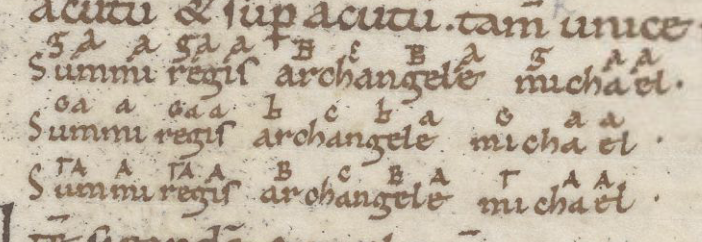 acutū & sup acutū. tam̄ unice
G A A GA A T B C B A G A A
Summi regis archangele michael.
G a a G a a b C b a G a a
Summi regis archangele michael .
Γ A A Γ A A B C B A Γ A A
Summi regis archangele michael .